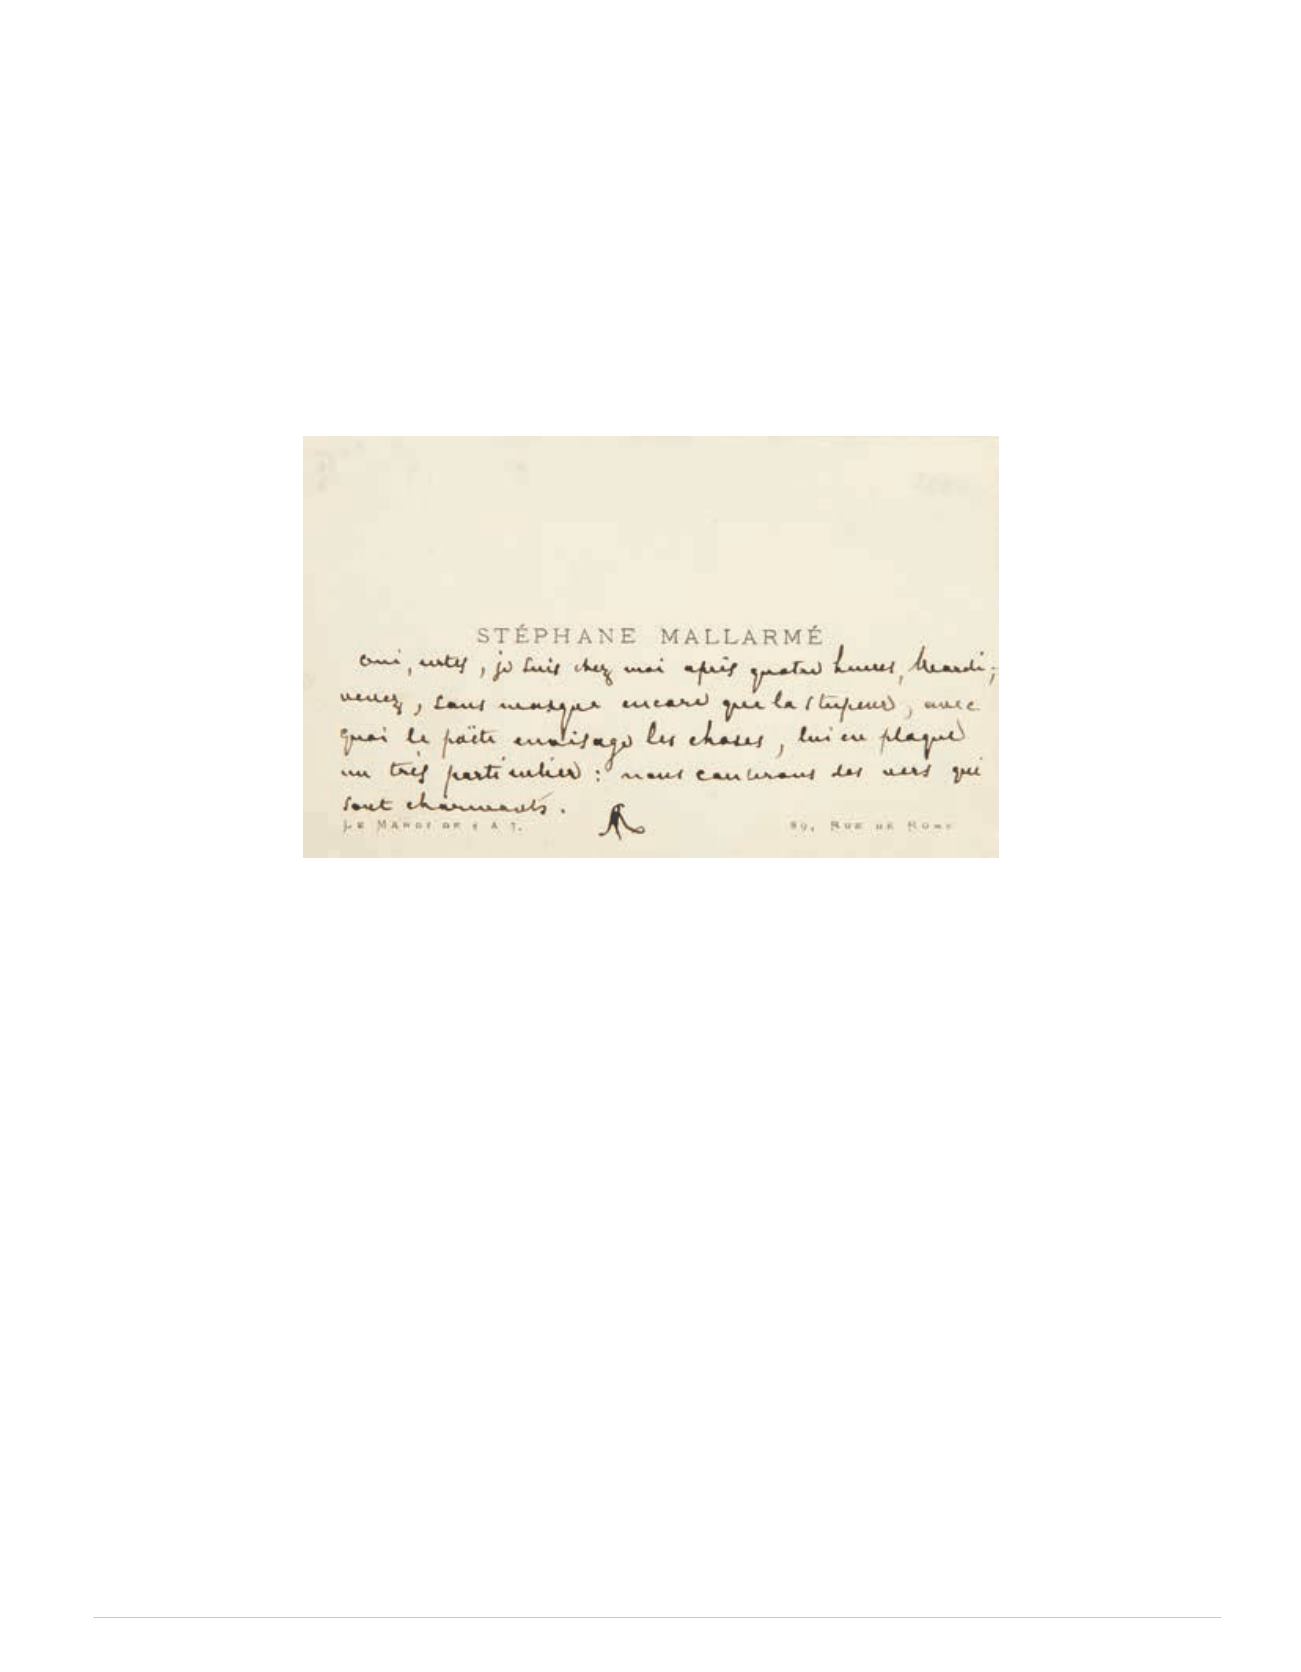 STÉPHANE MALLARMÉ
oui, certes, je suis chez moi après quatre heures, Mardi ;
venez, sans masque encore que la stupeur, avec
quoi le poëte envisage les choses, lui en plaque
un très particulier : nous causerons des vers qui
sont charmants.
LE MARDI DE A 7. 89, RUE DE ROME